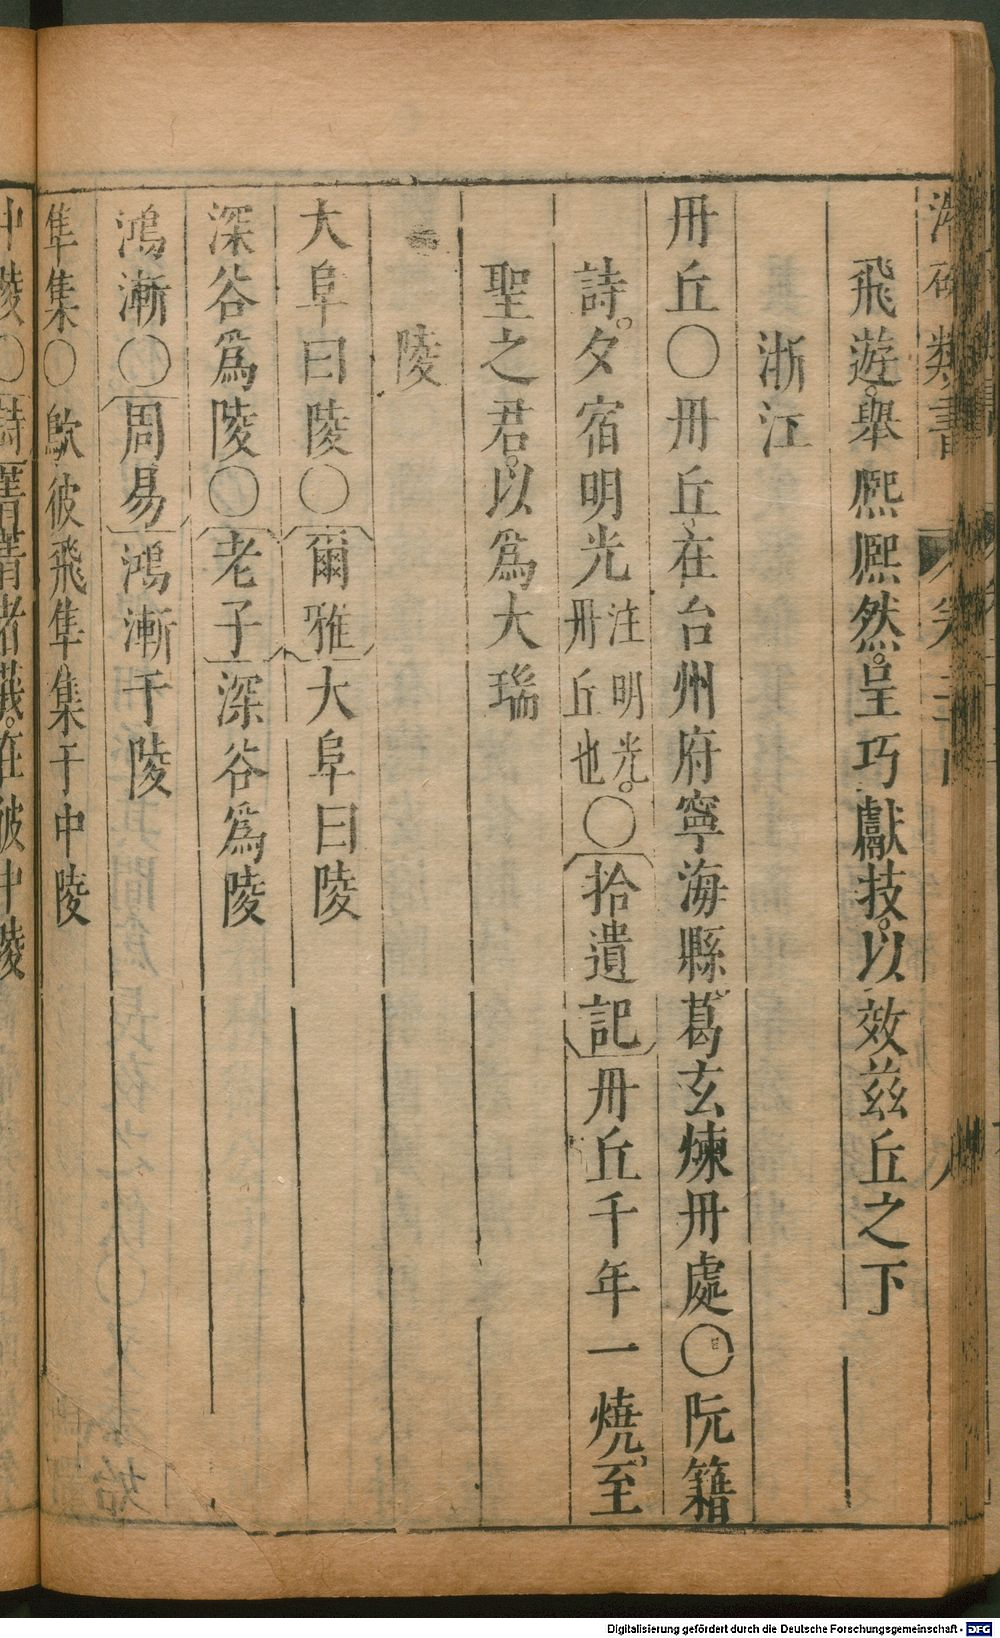 類書
卷三
飛遊。舉熈熈然。呈巧獻技。以效兹丘之下
浙江
冊丘〇冊丘在台州府寧海縣葛玄煉冊處〇阮籍
詩。夕宿明光注明光。冊丘也〇拾遺記冊丘千年一燒。至
聖之君。以爲大瑞
陵
大阜曰陵〇爾雅大阜曰陵
深谷爲陵〇老子深谷爲陵
鴻漸〇周易鴻漸于陵
隼集〇歍彼飛隼集于中陵
中陵〇詩菁菁者莪。在彼中陵
Digitalisierung gefördert durch die Deutsche Forschungsgemeinschaft - DFG